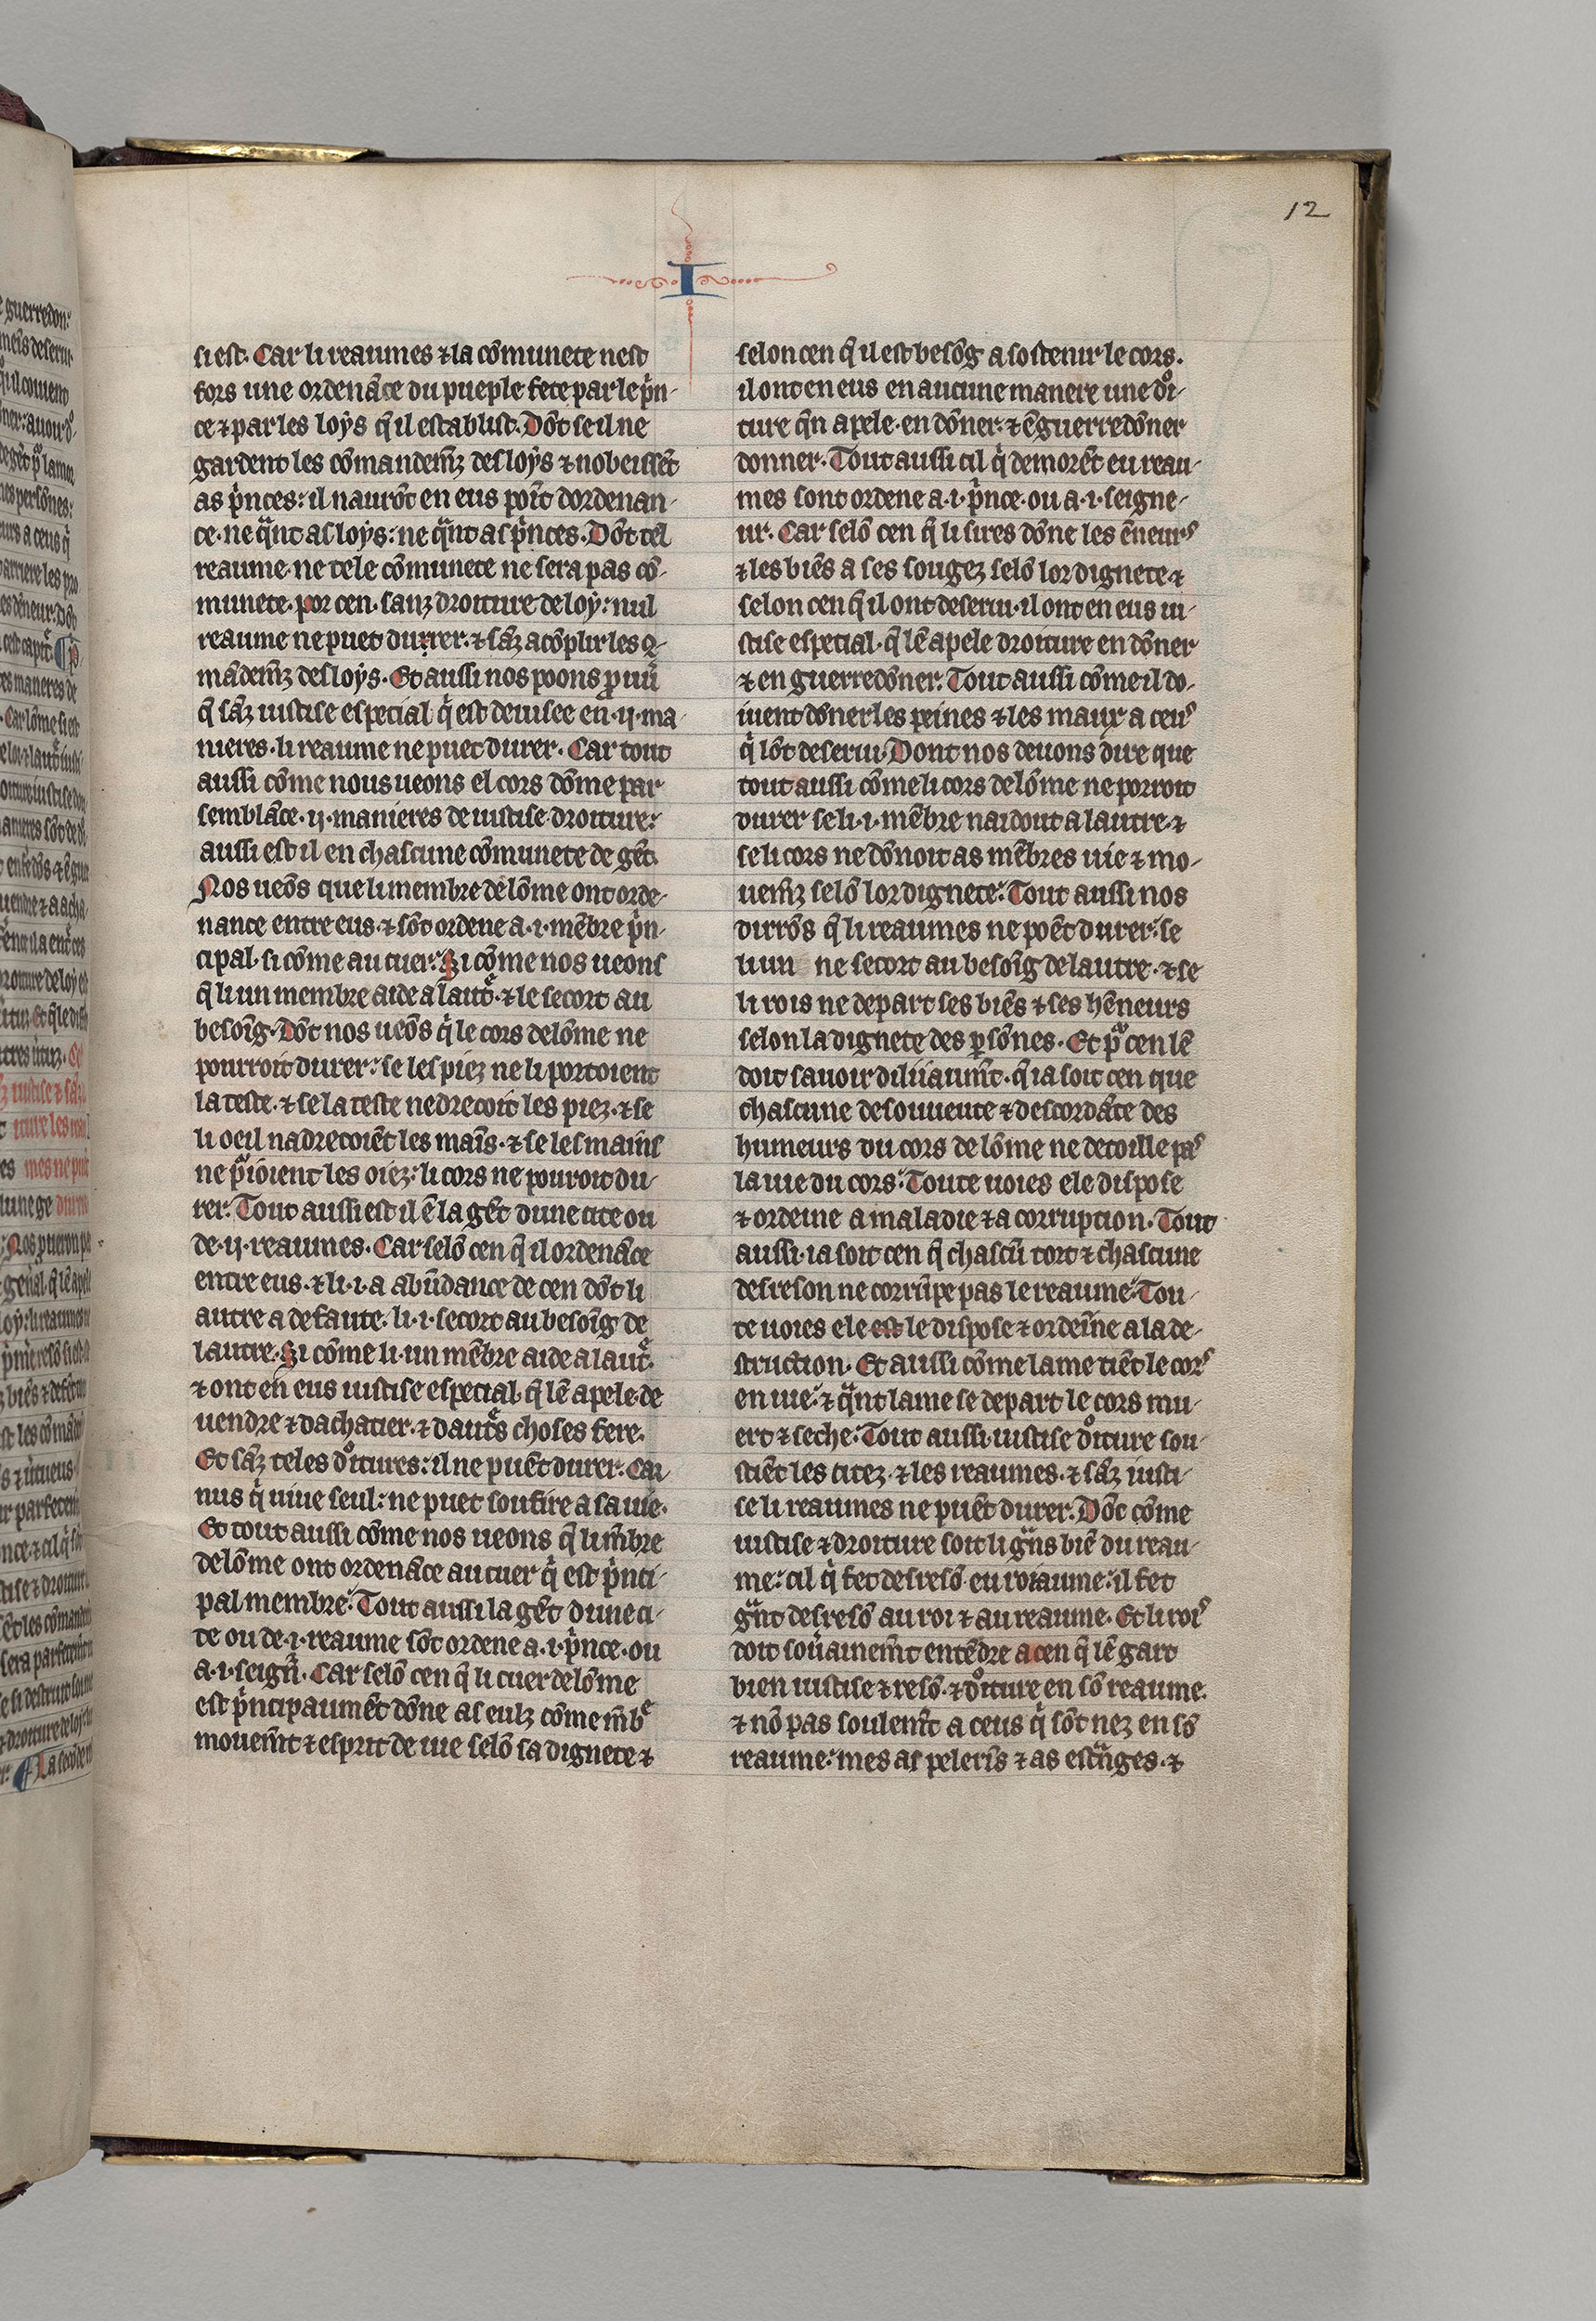 12
I
si est. Car li reaumes ⁊ la cōmunete nest
fors une ordenāce du pueple fete par le pͥn-
ce ⁊ par les loẏs q̄ il establist. Dōt se il ne
gardent les cōmandem̄z des loẏs ⁊ nobeissēt
as pͥnces: il naurōt en eus poīt dordenan-
ce. ne qͣnt as loẏs: ne qͣnt as pͥnces. Dōt tel
reaume ne tele cōmunete ne sera pas cō-
munete. por cen. sanz droiture de loy: nul
reaume ne puet durrer. ⁊ sāz acōplir les ꝯ-
mādem̄z des loys. Et aussi nos poons ꝓuū
q̄ sāz iustise especial qͥ est deuisee en .ij. ma-
nieres. li reaume ne puet durer. Car tout
aussi cōme nous ueons el cors dōme par
semblāce .ij. manieres de iustise droiture:
aussi est il en chascune cōmunete de gēt.
Nos ueōs que li membre de lōme ont orde-
nance entre eus. ⁊ sōt ordene a .i. mēbre pͥn-
cipal. si cōme au cuer: Si cōme nos ueons
q̄ li un membre aide a lautͤ. ⁊ le secort au
besoīg. Dōt nos ueōs qͥ le cors de lōme ne
pourroit durer: se les piez ne li portoient
la teste. ⁊ se la teste nedrecoit les piez. ⁊ se
li oeil nadrecoiēt les maīs. ⁊ se les mains
ne pͣioient les oiez: li cors ne pouroit du-
rer. Tout aussi est il ē la gēt dune cite ou
de .ij. reaumes. Car selō cen q̄ il ordenāce
entre eus. ⁊ li .i. a abūdance de cen dōt li
autre a defaute. li .i. secort au besoīg de
lautre. Si cōme li un mēbre aide a lautͤ.
⁊ ont en eus iustise especial. q̄ lē apele. de
uendre ⁊ dachatier. ⁊ dautͤs choses fere.
Et sāz teles dͦitures: il ne puēt durer. Car
nus qͥ uiue seul: ne puet soufire a sa uie.
Et tout aussi cōme nos ueons q̄ li m̄bre
de lōme ont ordenāce au cuer qͥ est pͥnci-
pal membre: Tout aussi la gēt dune ci-
te ou de .i. reaume sōt ordene a .i. pͥnce. ou
a .i. seign̄. Car selō cen q̄ li cuer de lōme
est pͥncipaumēt dōne as eulz cōme m̄bͤ
mouem̄t ⁊ esprit de uie selō sa dignete ⁊
selon cen q̄ il est besōg a sostenir le cors.
il ont en eus en aucune manere une dͦi-
ture qͥn apele. en dōner. ⁊ ēguerredōner
donner. Tout aussi cil qͥ demorēt eu reau-
mes sont ordene a .i. pͥnce. ou a .i. seigne-
ur. Car selō cen q̄ li sires dōne les ēneurˢ
⁊ les biēs a ses sougez selō lor dignete ⁊
selon cen q̄ il ont deserui. il ont en eus iu-
stise especial. q̄ lē apele droiture en dōner
⁊ en guerredōner. Tout aussi cōme il do-
iuent dōner les peines ⁊ les maux a ceuˢ
qͥ lōt deserui. Dont nos deuons dire que
tout aussi cōme li cors de lōme ne porroit
durer se li .i. mēbre naidout a lautre. ⁊
se li cors ne dōnoit as mēbres uie ⁊ mo-
uem̄z selō lor dignete: Tout aussi nos
dirrōs q̄ li reaumes ne poēt durer: se
li un ne secort au besoīg de lautre. ⁊ se
li rois ne depart ses biēs ⁊ ses hēneurs
selon la dignete des ꝑsōnes. Et pͦ cen lē
doit sauoir diliiaum̄t. q̄ ia soit cen que
chascune desouuente ⁊ descordāce des
humeurs du cors de lōme ne detoille paˢ
la uie du cors: Toute uoies ele dispose
⁊ ordeine a maladie ⁊ a corruption. Tout
aussi. ia soit cen q̄ chascū tort ⁊ chascune
desreson ne corrūpe pas le reaume: Tou-
te uoies ele est le dispose ⁊ ordeīne a la de-
struction. Et aussi cōme lame tiēt le corˢ
en uie: ⁊ qͣnt lame se depart le cors mu-
ert ⁊ seche: Tout aussi. iustise dͦiture sou-
stiēt les citez. ⁊ les reaumes. ⁊ sāz iusti-
se li reaumes ne puēt durer. Dōt cōme
iustise ⁊ droiture soit li gͣns biē du reau-
me: cil qͥ fet desresō eu roiaume: il fet
gͣnt desresō au roi ⁊ au reaume. Et li roiˢ
doit souͣainem̄t entēdre a cen q̄ lē gart
bien iustise ⁊ resō. ⁊ dͦiture en sō reaume.
⁊ nō pas soulem̄t a ceus qͥ sōt nez en sō
reaume: mes as pelerīs ⁊ as estͣnges. ⁊